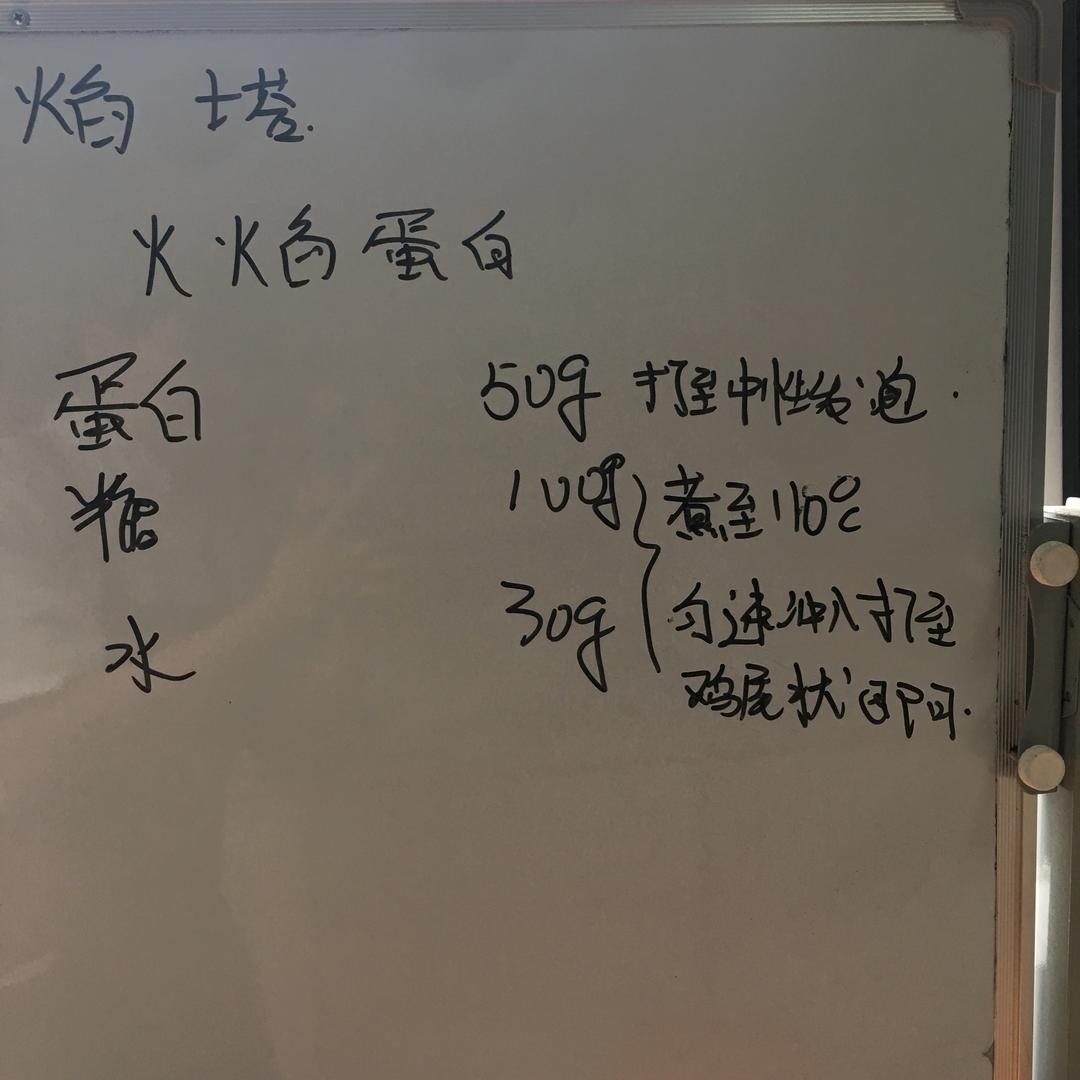 焰 塔.
火焰蛋白
蛋白 50g 打至中性发泡.
糖 100g 煮至110℃
水 30g 匀速冲入打至
鸡尾状即可.